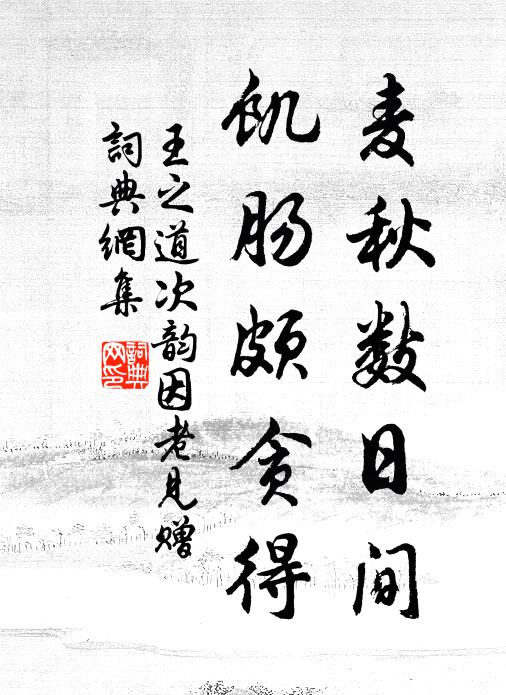 麦秋数日间
饥肠颇贪得
王之道次韵因老见赠
詞典網集
詞典
网印